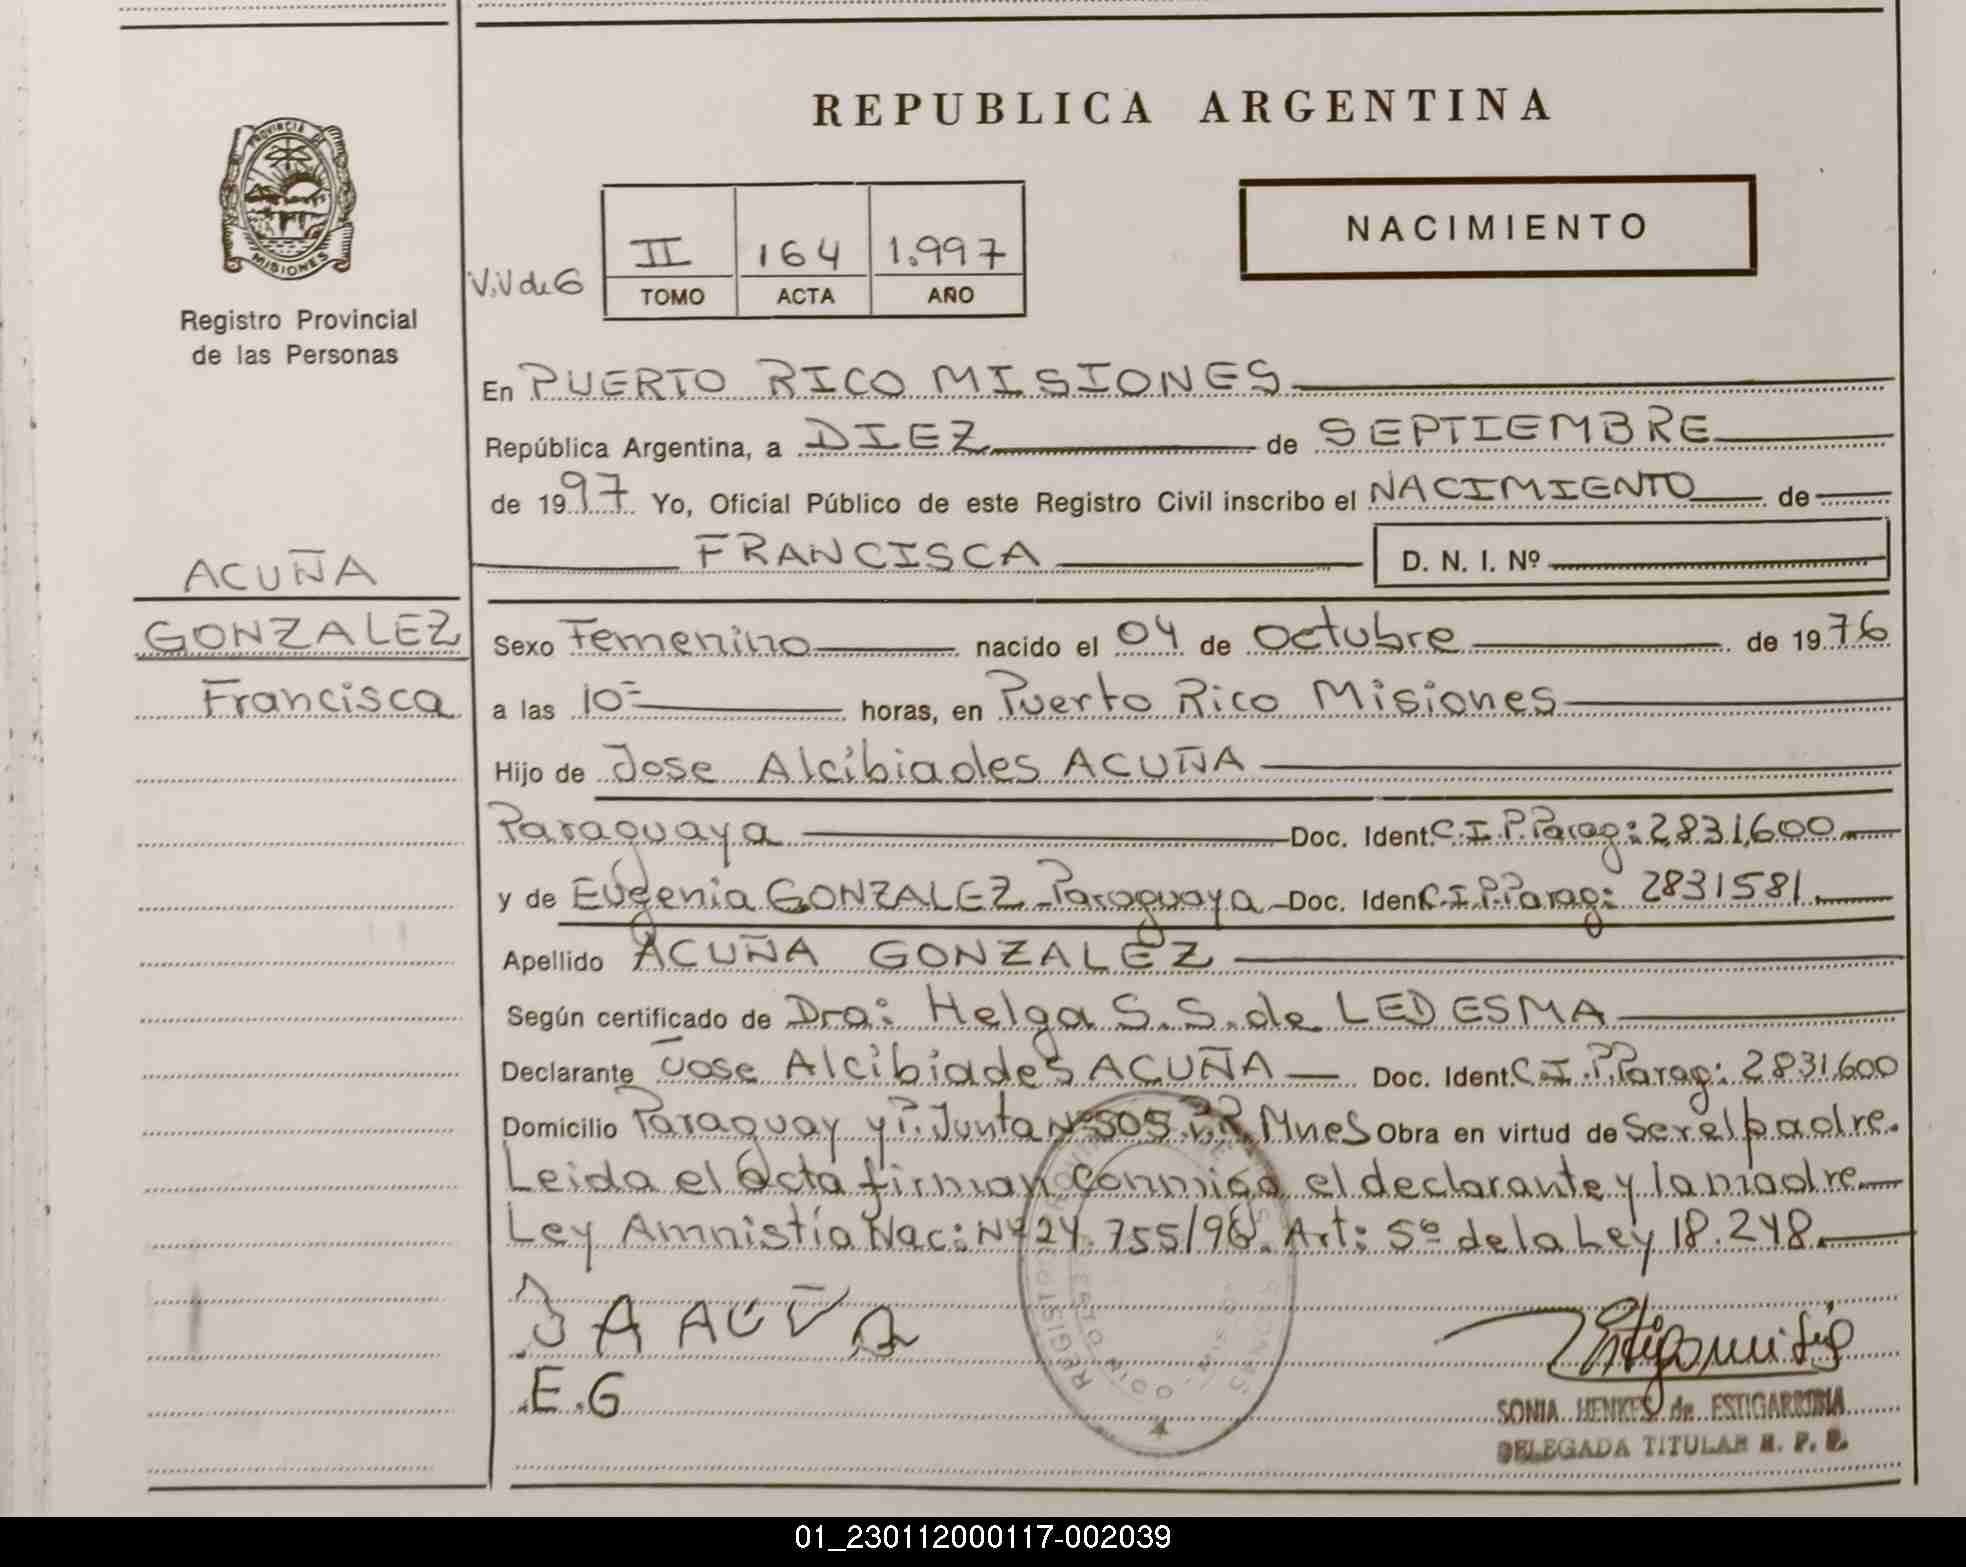 REPUBLICA ARGENTINA
PROVINCIA DE
MISIONES
Registro Provincial
de las Personas
NACIMIENTO
V.V de G
II 164 1.997
TOMO ACTA AÑO
En PUERTO RICO MISIONES
República Argentina, a DIEZ de SEPTIEMBRE
de 1997 Yo, Oficial Público de este Registro Civil inscribo el NACIMIENTO de
FRANCISCA D. N. I. Nº
ACUÑA
GONZALEZ
Francisca
Sexo Femenino nacido el 04 de Octubre de 1976
a las 10= horas, en Puerto Rico Misiones
Hijo de Jose Alcibiades ACUÑA
Paraguaya Doc. Ident. C.I.P. Parag: 2831,600
y de Eugenia GONZALEZ - Paraguaya - Doc. Iden C.I.P. Parag: 2831581
Apellido ACUÑA GONZALEZ
Según certificado de Dra: Helga S.S. de LEDESMA
Declarante Jose Alcibiades ACUÑA Doc. Ident. C.I.P. Parag: 2831,600
Domicilio Paraguay y P. Junta Nº 505 P.R. Mnes Obra en virtud de Ser el padre.
Leida el acta firman conmigo el declarante y la madre
Ley Amnistía Nac: Nº 24.755/96. Art: 5º de la Ley 18.248.
J A ACUÑA
E.G
SONIA HENKES de ESTIGARRIBIA
DELEGADA TITULAR R. P. P.
01_230112000117-002039